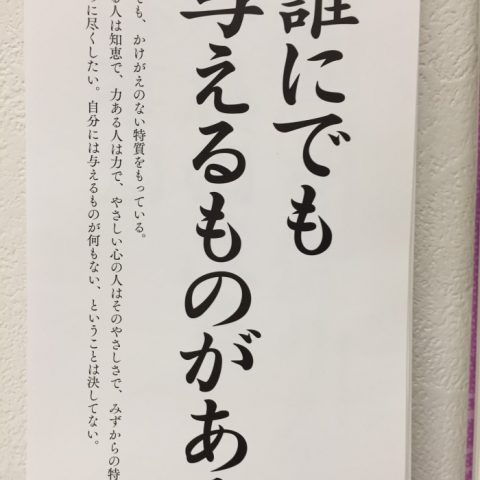 誰にでも
与えるものがあ
でも、かけがえのない特質をもっている。
る人は知恵で、力ある人は力で、やさしい心の人はそのやさしさで、みずからの特
に尽くしたい。自分には与えるものが何もない、ということは決してない。